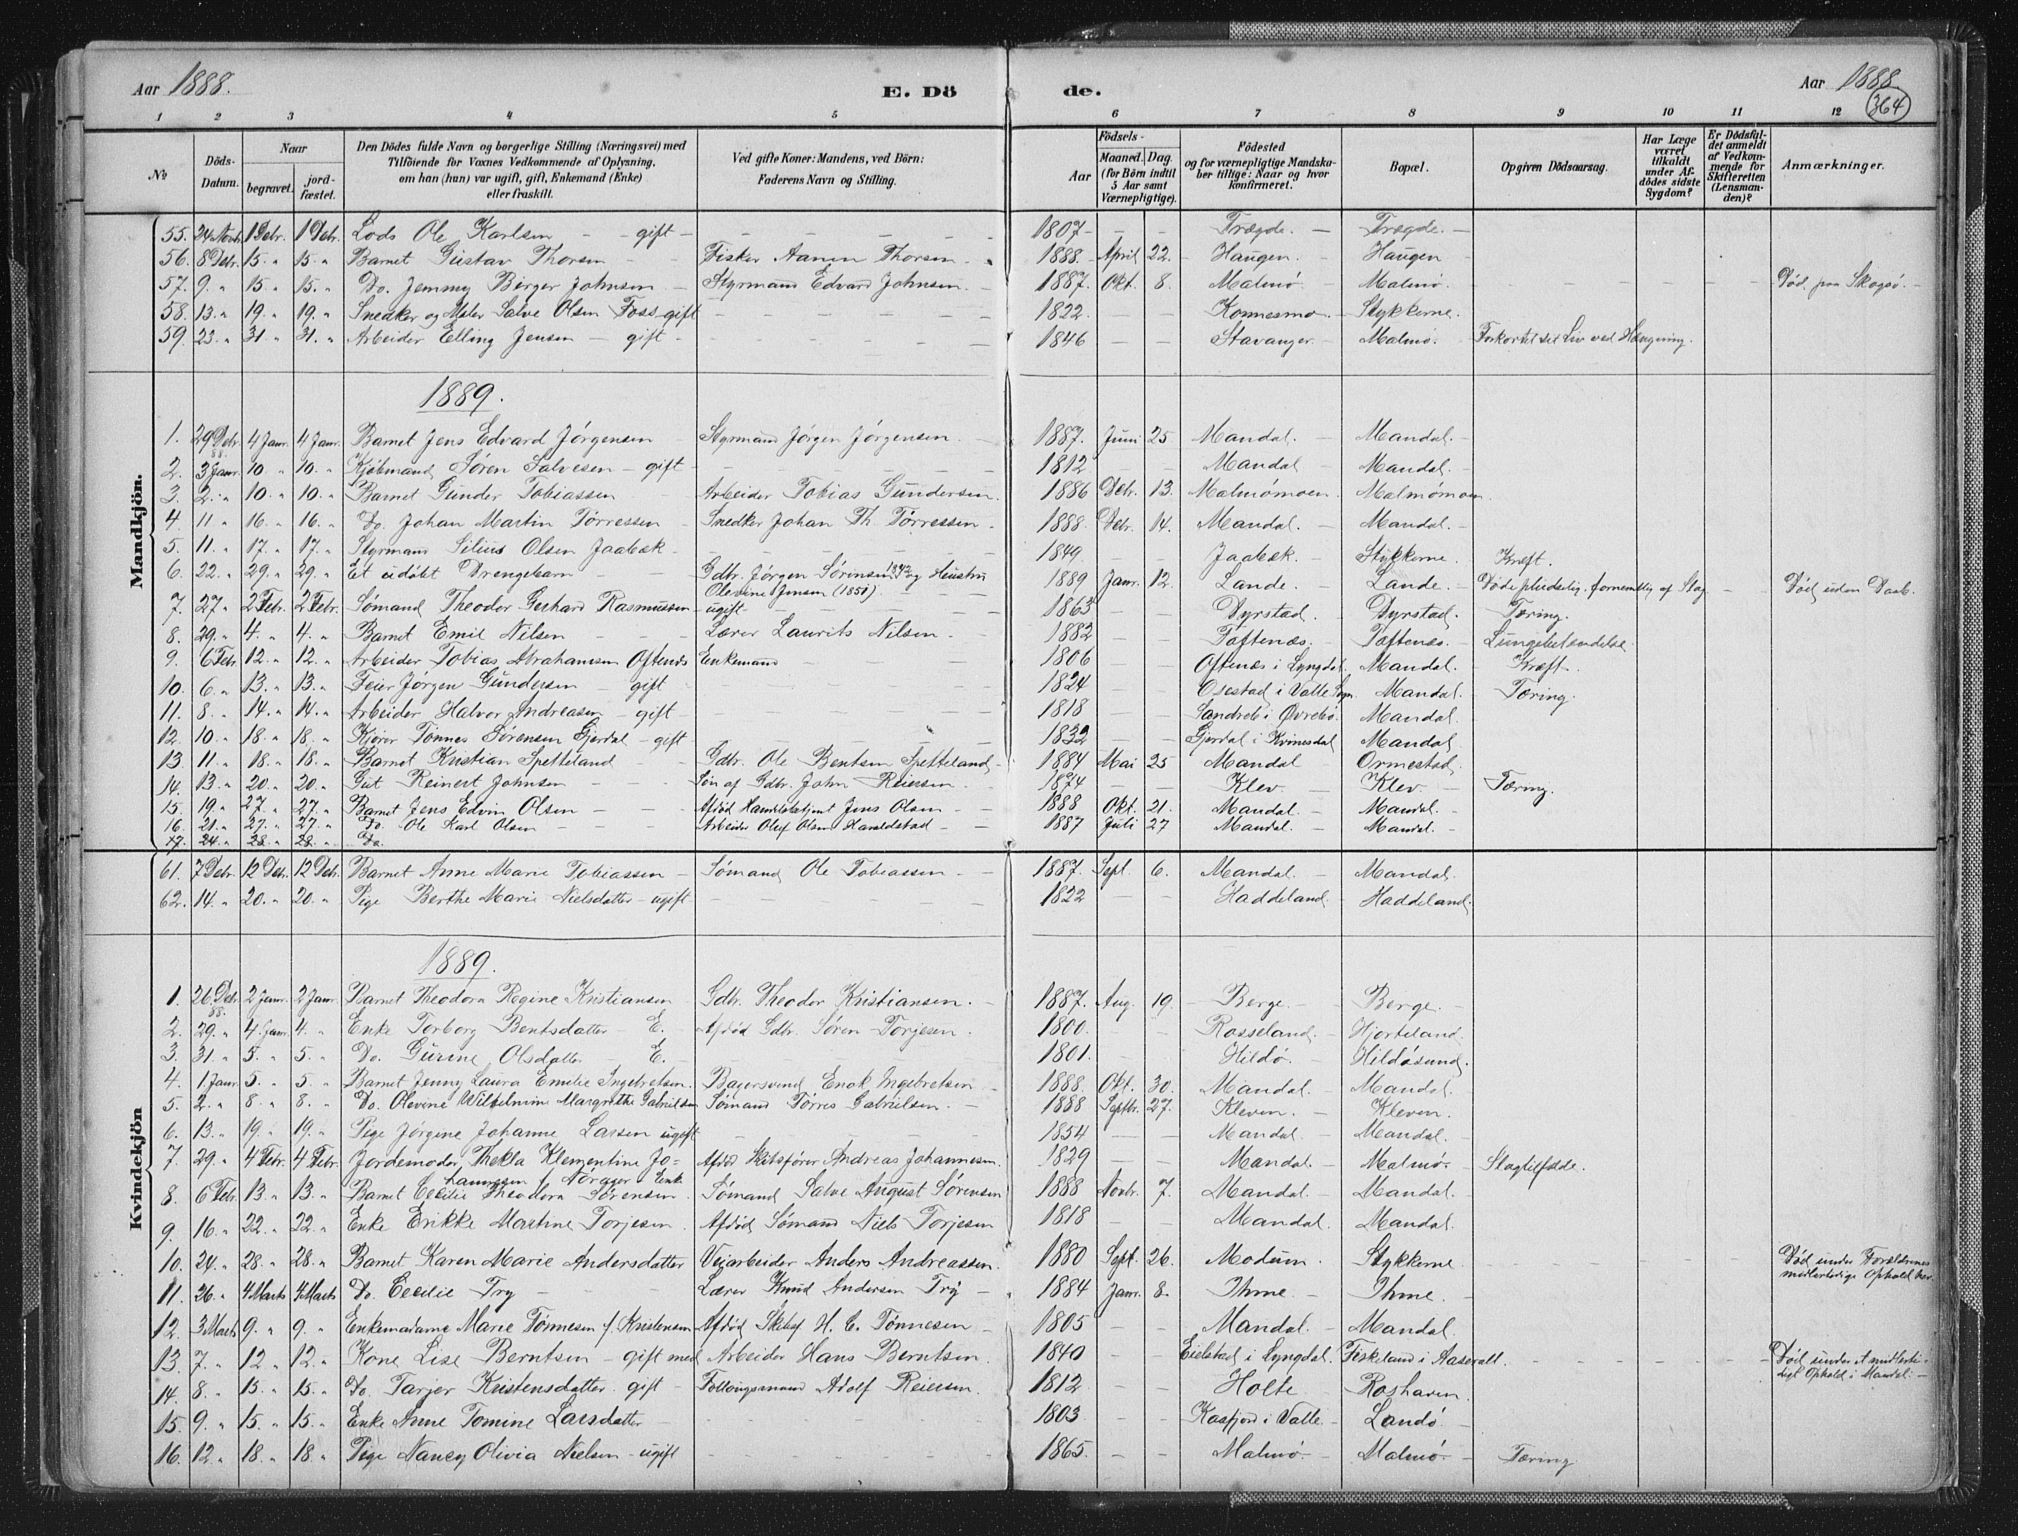 Aar 1888. E. Dö de. Aar 1888.
364
1 2 3 4 5 6 7 8 9 10 11 12
No Döds-Datum. Naar begravet. jordfæstet. Den Dödes fulde Navn og borgerlige Stilling (Næringsvei) med Tilföiende for Voxnes Vedkommende af Oplysning, om han (hun) var ugift, gift, Enkemand (Enke) eller fraskilt. Ved gifte Koner: Mandens, ved Børn: Faderens Navn og Stilling. Födsels- Aar Maaned. Dag. (for Børn indtil 5 Aar samt Værnepligtige). Födested og for værnepligtige Mandskaber tillige: Naar og hvor konfirmeret. Bopæl. Opgiven Dödsaarsag. Har Læge været tilkaldt under Afdödes sidste Sygdom? Er Dödsfaldet anmeldt af Vedkommende for Skifteretten (Lensmanden)? Anmærkninger.
Mandkjön.
55. 24 Novbr. 1 Debr. 1 Debr. Lods Ole Karlsen - gift - 1807 - - Trægde. - Trægde. -
56. 8 Debr. 15. " 15. " Barnet Gustav Thorsen - Fisker Aanen Thorsen - 1888. April 22. Haugen - Haugen -
57. 9. " 15. " 15. " Do. Jemmy Berger Johnsen - Styrmand Edvard Johnsen. - 1887. Okt. 8. Malmø. - Malmø. - Död paa Skogsø. -
58. 13. " 19. " 19. " Snedker og Maler Salve Olsen Foss - gift 1822. - - Konnesmo - Stykkerne. -
59. 23. " 31. " 31. " Arbeider Elling Jensen - gift - 1846 - - Stavanger. - Malmø. - Forkortet sit Liv ved Hængning.
1889.
1. 29 Debr. 88. 4 Janr. 4 Janr. Barnet Jens Edvard Jörgensen Styrmand Jörgen Jörgensen. - 1887. Juni 25 Mandal. - Mandal. -
2. 3 Janr. 10. " 10. " Kjøbmand Søren Salvesen - gift - 1812 - - Mandal - Mandal. -
3. 2. " 10. " 10. " Barnet Gunder Tobiassen Arbeider Tobias Gundersen. 1886 Debr. 13. Malmömoen. Malmömoen.
4. 11 " 16. " 16. " Do. Johan Martin Törressen Snedker Johan Th. Törressen. 1888. Debr. 14. Mandal. - Mandal. -
5. 11. " 17. " 17. " Styrmand Silius Olsen Jaabæk - 1849 - - Jaabæk. - Stykkerne. Kræft.
6. 22. " 29. " 29. " Et udöbt Drengebarn - Gdbr. Jörgen Sörensen 1842 og Hustru 1889 Janr. 12. Lande. - Lande. - Döde pludselig, fornemlig af Slag - - Död uden Daab.
Olevine Jensen (1851)
7. 27 " 2 Febr. 2 Febr. Sömand Theodor Gerhard Rasmussen - ugift - 1863 - - Dyrstad. - Dyrstad. Tæring.
8. 29. " 4. " 4. " Barnet Emil Nilsen - Lærer Laurits Nilsen. - 1882 - - Toftenæs. - Toftenæs. - Lungebetændelse
9. 6 Febr. 12. " 12. " Arbeider Tobias Abrahamsen Oftenes Enkemand 1806 - - Oftenæs i Lyngdal. Mandal. - Kræft.
10. 6. " 13. " 13. " Feier Jörgen Gundersen - gift - 1824 - - Osestad i Valle Sogn Mandal. - Tæring.
11. 8. " 14. " 14. " Arbeider Halvor Andreasen - gift - 1818 - - Sandreb i Øvrebø. Mandal.
12. 10. " 18. " 18. " Kjører Tönnes Sörensen Gjerdal - gift - 1832 - - Gjerdal i Kvinesdal Mandal.
13. 11. " 18. " 18. " Barnet Kristian Spetteland - Gdbr. Ole Bentsen Spetteland - 1884 Mai 25 Mandal - Ormestad. -
14. 13. " 20. " 20. " Gut Reinert Johnsen - Sön af Gdbr. John Reiersen. - 1874 - - Klev. - Klev - Tæring.
15. 19. " 27. " 27. " Barnet Jens Edvin Olsen - Afdöd Handelsbetjent Jens Olsen - 1888 Okt. 21. Mandal. - Mandal. -
16. 21. " 27. " 27. " Do Ole Karl Olsen - Arbeider Oluf Olsen Haraldstad - 1887 Juli 27 Mandal. - Mandal. -
17. 24. " 28. " 28. " Do.
Kvindekjön
61. 7 Debr. 12 Debr. 12 Debr. Barnet Anne Marie Tobiassen - Sömand Ole Tobiassen - 1887. Sept. 6. Mandal. - Mandal.
62. 14. " 20. " 20. " Pige Berthe Marie Nielsdatter - ugift - 1822 - - Haddeland. Haddeland.
1889.
1. 26 Debr. 88. 2 Janr. 2 Janr. Barnet Theodora Regine Kristiansen Gdbr. Theodor Kristiansen. - 1887. Aug. 19. Berge. - Berge. -
2. 29. " 4. Janr. 4. " Enke Torborg Bentsdatter - E. Afdöd Gdbr. Sören Torjesen. 1800. - - Rosseland. - Hjorteland.
3. 31. " 5. " 5. " Do. Gurine Olsdatter - E. 1801. - - Hildö. - Hildösund.
4. 1 Janr. 5. " 5. " Barnet Jenny Laura Emilie Ingebretsen. Bagersvend Enok Ingebretsen 1888. Okt. 30. Mandal. - Mandal.
5. 2. " 8. " 8. " Do. Olevine Wilhelmine Margrethe Gabrielsen Sömand Törres Gabrielsen. - 1888 Septbr. 27. Kleven. - Kleven.
6. 13. " 19. " 19. " Pige Jörgine Johanne Larsen ugift 1854 - - Mandal. - Mandal.
7. 29. " 4 Febr. 4 Febr. Jordemoder Thekla Klementine Jo- Afdöd Skibsförer Andreas Johannesen. 1829 - - Mandal. - Malmø. - Slagtilfælde.
hannesen f. Nörager Enke
8. 6 Febr. 13. " 13. " Barnet Cecilie Theodora Sörensen Sömand Salve August Sörensen 1888 Novbr. 7. Mandal. - Mandal.
9. 16. " 22. " 22. " Enke Erikke Martine Torjesen. Afdöd Sömand Niels Torjesen 1818 - - Mandal. Mandal.
10. 24. " 28. " 28. " Barnet Karen Marie Andersdatter Veiarbeider Anders Andreassen. 1880 Sept. 26. Modum. - Stykkerne. - Död under Forældrenes midlertidige Ophold her.
11. 26. " 4 Marts 4 Marts Do. Cecilie Try - Lærer Knud Andersen Try - 1884 Janr. 8. Ihme. - Ihme. -
12. 3 Marts 9. " 9. " Enkemadame Marie Tönnesen f. Kristensen Afdöd Skibsf. H. C. Tönnesen - 1805 - - Mandal. - Mandal.
13. 7. " 12. " 12. " Kone Lise Berntsen - gift med Arbeider Hans Berntsen. 1840 - - Eielstad i Lyngdal. Fiskeland i Aaseral. - Död under et midlertidigt Ophold i Mandal. -
14. 8. " 15. " 15. " Do Tarjer Kristensdatter. gift Adolf Reiersen. 1812. - - Holte Roshaven.
15. 9. " 15. " 15. " Enke Anne Tomine Larsdatter - 1803 - - Kasfjord i Valle. - Landö.
16. 12. " 18. " 18. " Pige Nancy Olivia Nielsen - ugift 1865. - - Malmø. - Malmø. Tæring